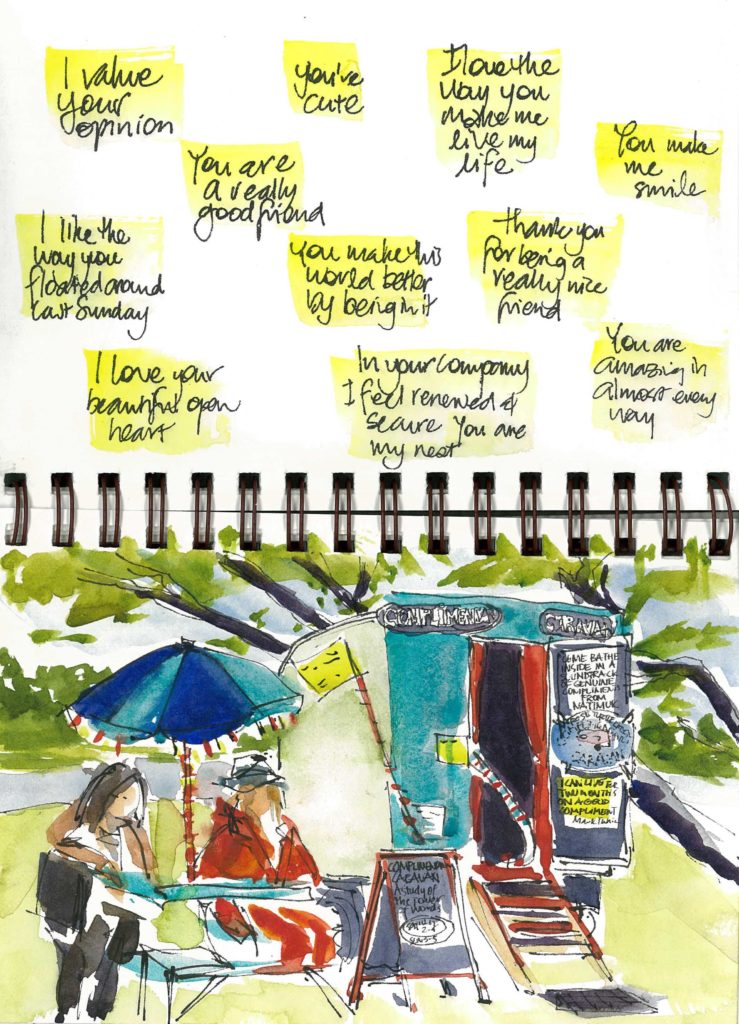 I value
your
opinion
you're
cute
I love the
way you
make me
live my
life
You make
me
smile
You are
a really
good friend
I like the
way you
floated around
last Sunday
You make this
world better
by being in it
thank you
for being a
really nice
friend
I love your
beautiful open
heart
In your company
I feel renewed &
secure You are
my nest
You are
amazing in
almost every
way
COMPLIMENTS
CARAVAN
COME BATHE
INSIDE IN A
SOUNDTRACK
OF GENUINE
COMPLIMENTS
FROM
NATIMUK
CARAVAN
I CAN LIVE FOR
TWO MONTHS
ON A GOOD
COMPLIMENT
Mark Twain
CARAVAN
A study of
the power
of words